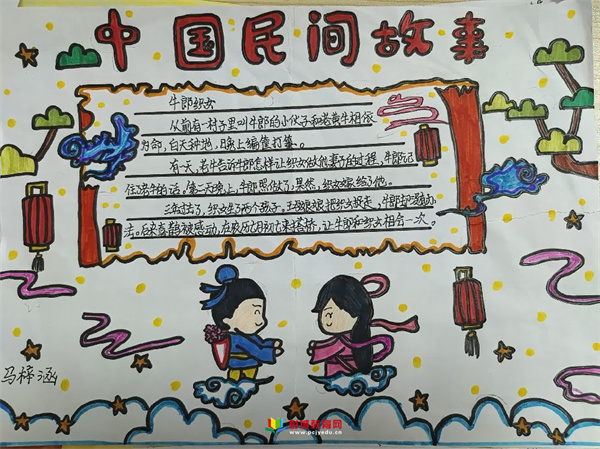 中国民间故事
牛郎织女
从前有一村子里叫牛郎的小伙子和老黄牛相依
为命，白天种地，晚上编筐打篓。
有一天，老牛告诉牛郎怎样让织女做他妻子的过程，牛郎记
住了老牛的话，第二天晚上，牛郎照做了，果然，织女嫁给了他。
三年过去了，织女生了两个孩子，王母娘娘把织女捉走，牛郎却追
去。后来喜鹊被感动，在农历七月初七来搭桥，让牛郎和织女相会一次。
马梓涵
www.pcjyedu.cn